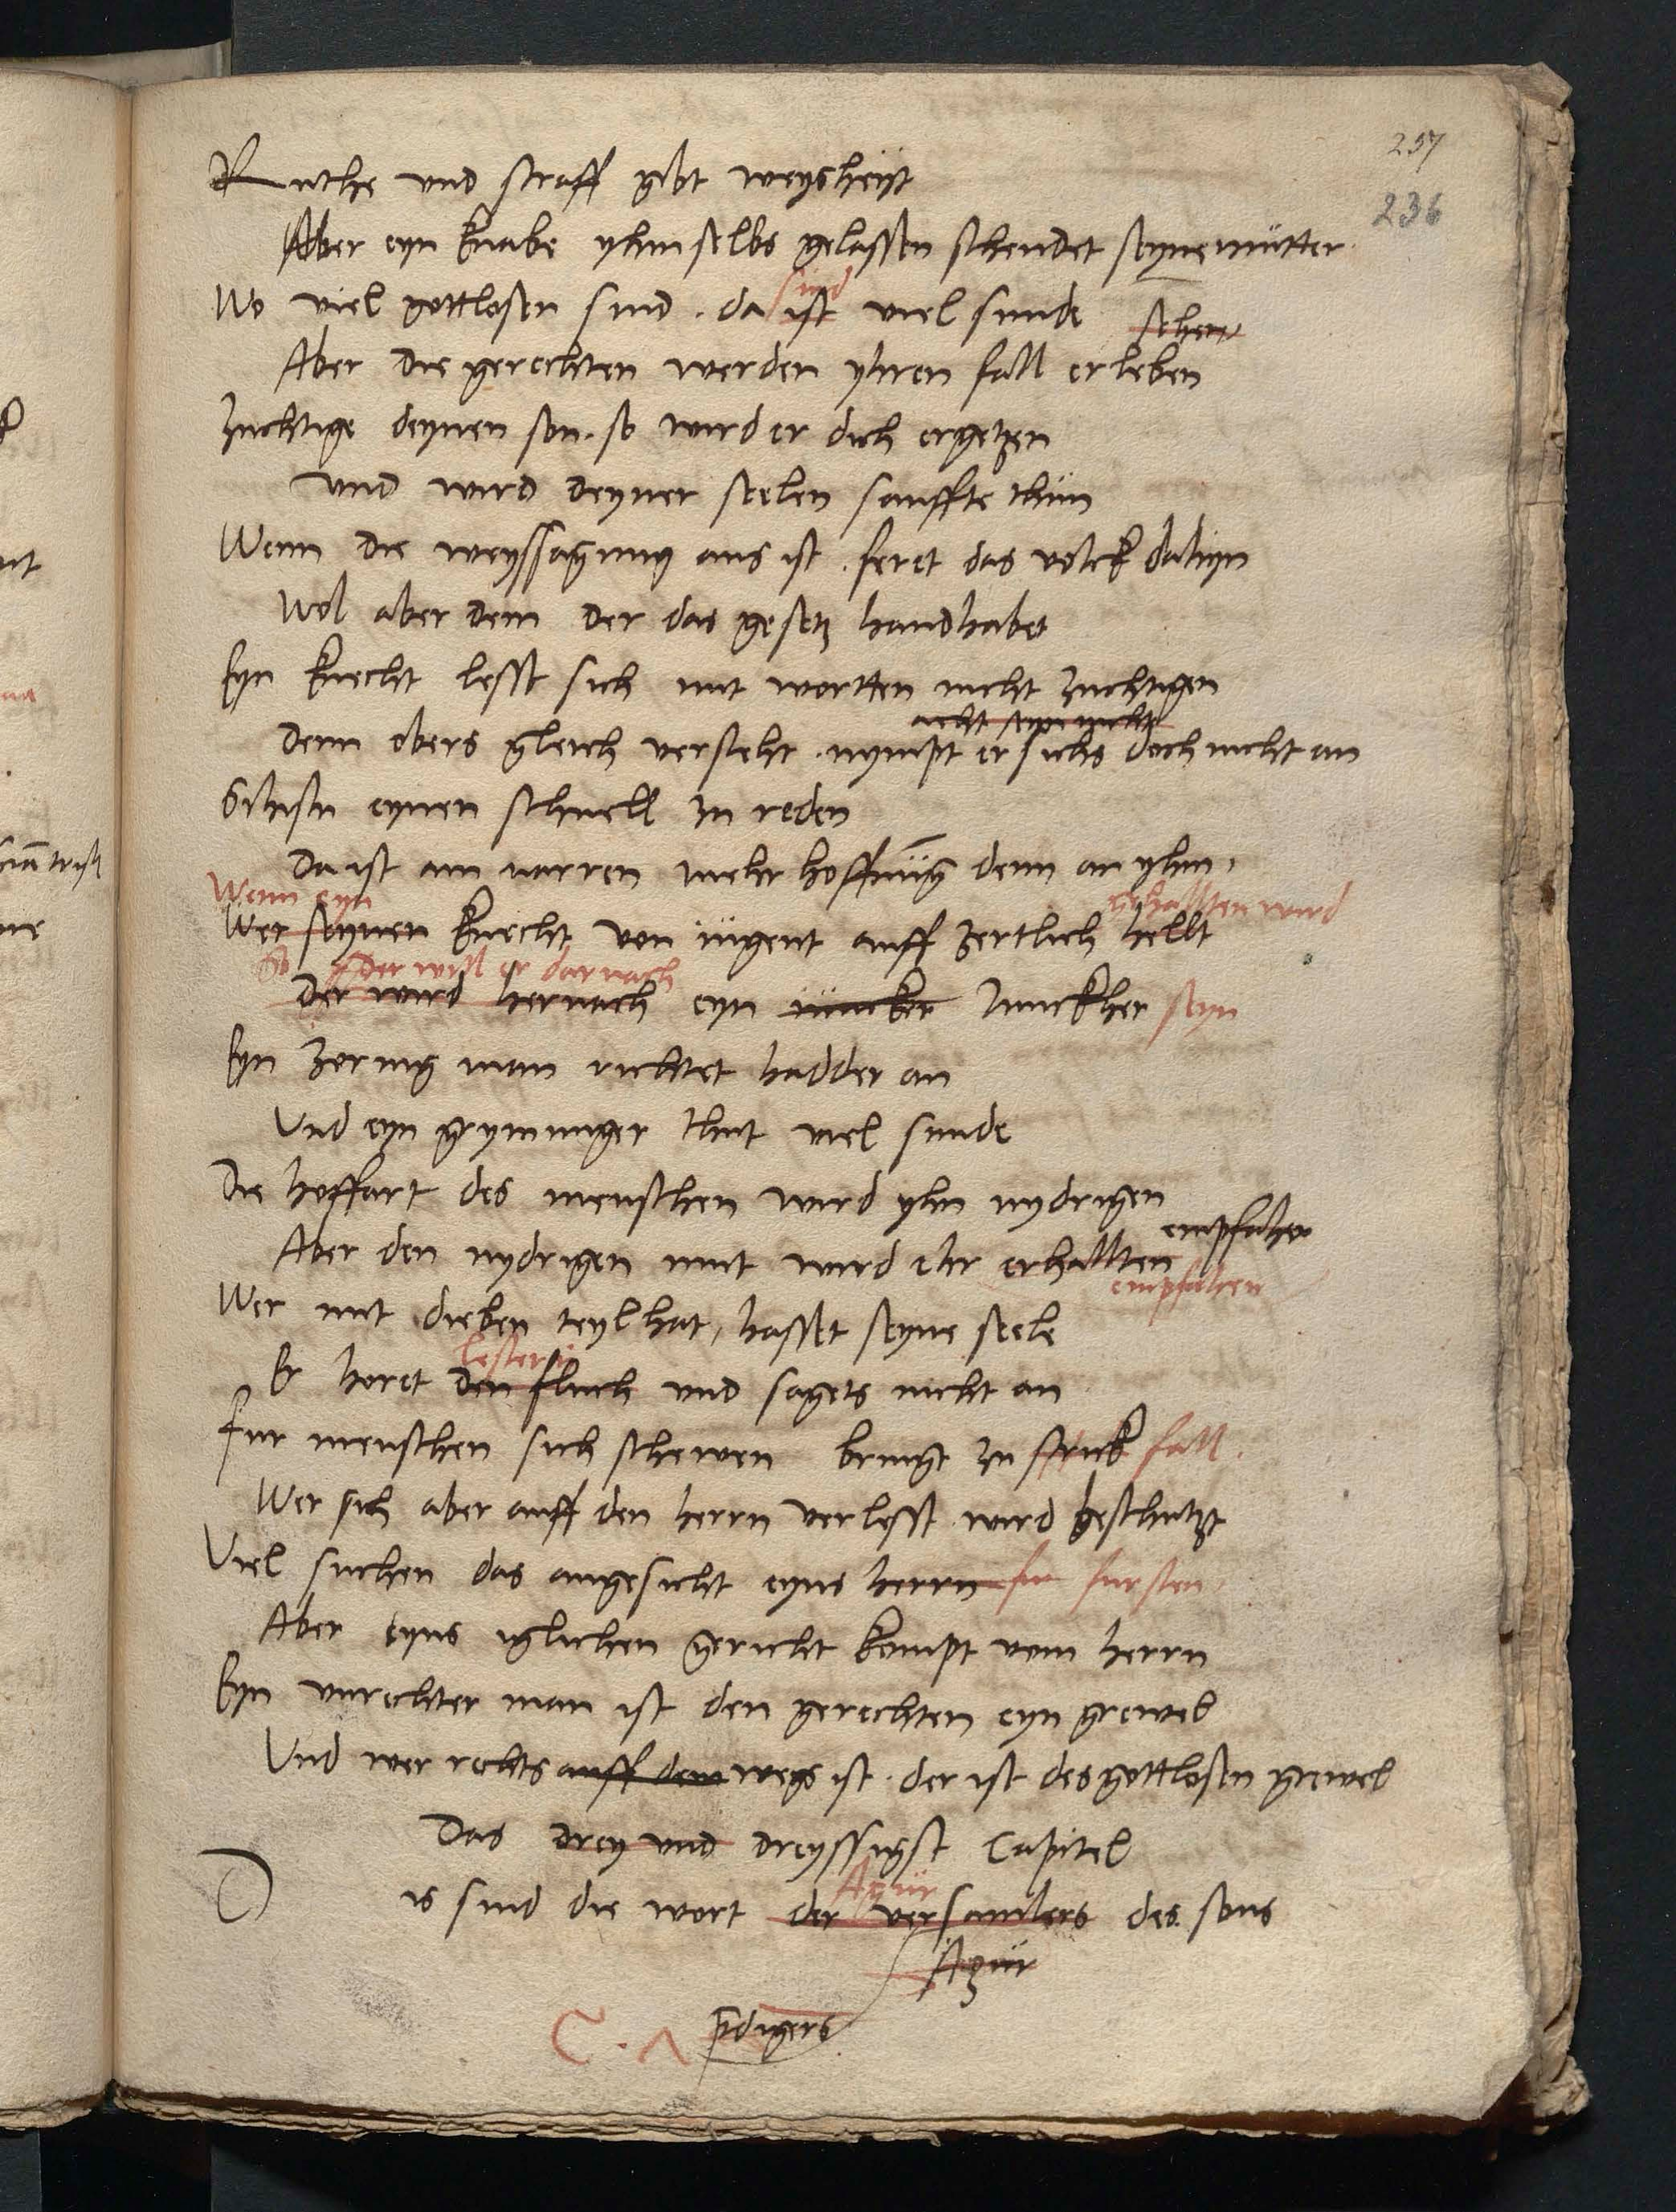 257
236
Ruthe vnd straff gibt weysheyt
Aber eyn knabe yhm selbs gelassen schendet seyne mutter
sind
Wo viel gottlosen sind . da ist viel sunde
sehen
Aber die gerechten werden yhren fall erleben
Zuchtige deynen son . so wird er dich ergetzen
vnd wird deyner seelen sanffte thun
Wenn die weyssagung aus ist . feret das volck dahyn
Wol aber dem der das gesetz handhabet
Eyn knecht lesst sich mit wortten nicht zuchtigen
acht seyn nicht
denn obers gleich verstehet . nympt er sichs doch nicht an
Sihistu eynen schnell zu reden
Da ist am narren mehr hoffnung denn an yhm .
Wenn eyn
gehallten wird
Wer seynen knecht von iugent auff zertlich hellt
So
der will er darnach
der wird hernach eyn iuncker Iunckher seyn
Eyn zornig man richtet hadder an
Vnd eyn grymmiger thut viel sunde
Die hoffart des menschen wird yhn nydrigen
empfahen
Aber den nydrigen mut wird ehr erhallten
empfahen
Wer mit dieben teyl hat, hasset seyne seele
lestern
Er horet den fluch vnd sagets nicht an
Fur menschen sich schewen bringt zu strick fall .
Wer sich aber auff den herrn verlesst wird beschutzt
Viel suchen das angesicht eyns herrn fur fursten
Aber eyns iglichen gericht kompt vom herrn
Eyn vnrechter man ist den gerechten eyn grewel
Vnd wer rechts auff dem wegs ist . der ist des gottlosen grewel
Das drey vnd dreyssigst Capitel
Agur
Dis sind die wort der versamlers des sons
Agur
pdigers